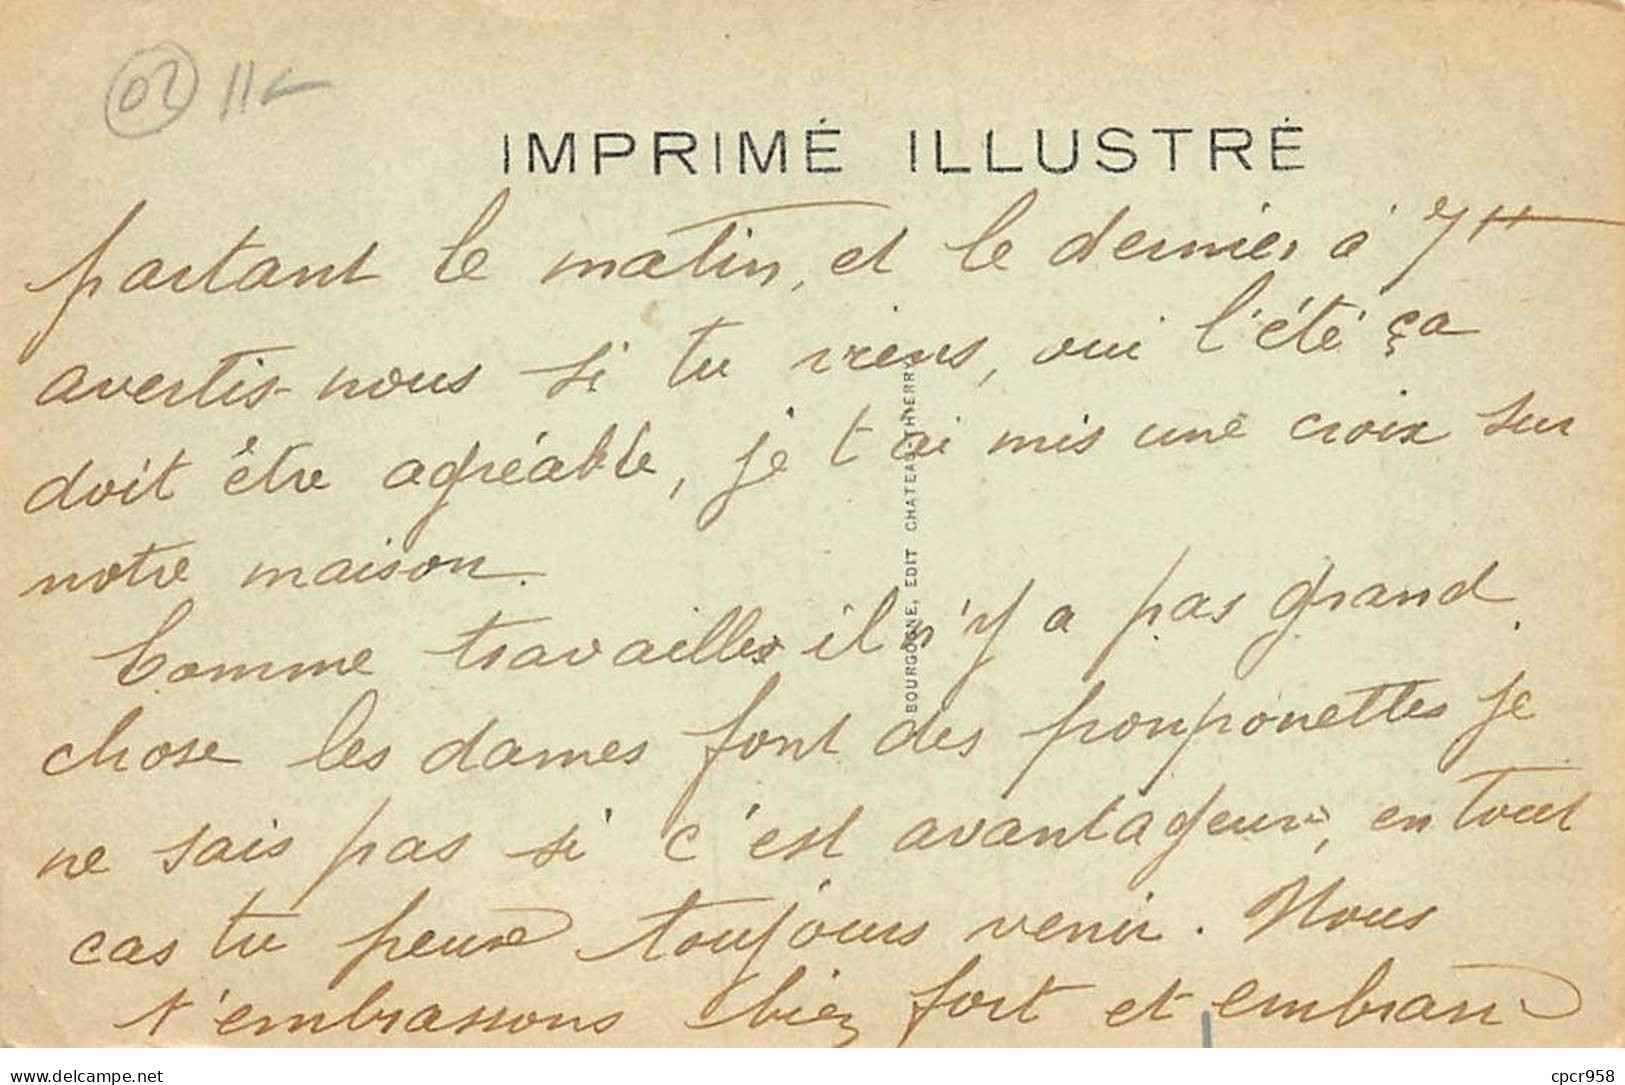 02 11
IMPRIMÉ ILLUSTRÉ
partant le matin, et le dernier à 7H
avertis-nous si tu viens, oui l'été ça
doit être agréable, je t'ai mis une croix sur
notre maison.
Comme travailles il n'y a pas grand
chose les dames font des pouponettes je
ne sais pas si c'est avantageux, en tout
cas tu peux toujours venir. Nous
t'embrassons bien fort et embran
BOURGOGNE, EDIT CHATEAU-THIERRY
delcampe.net
cpcr958